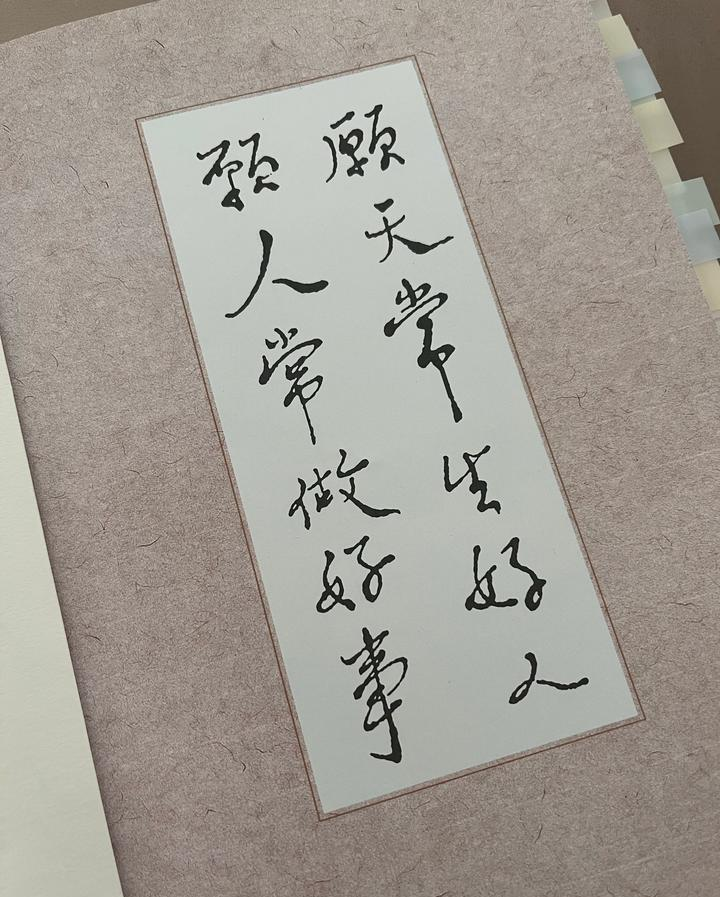 願天常生好人
願人常做好事